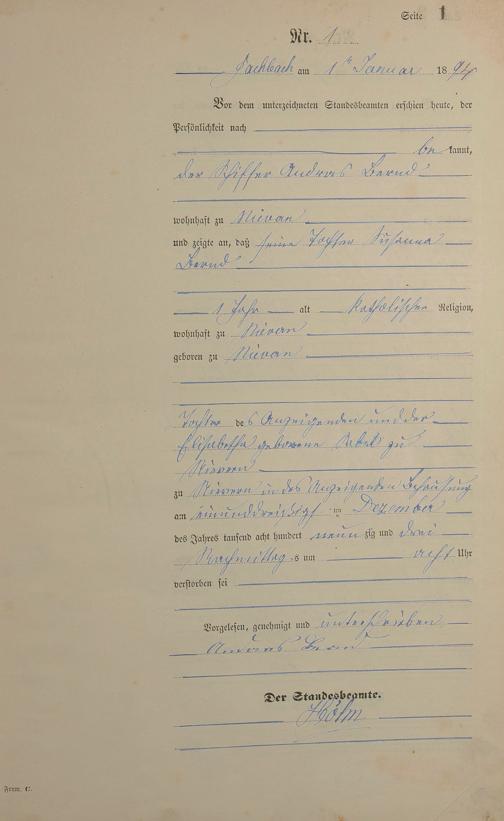 Seite 1
Nr. 1
Fachbach am 1ten Januar 1894
Vor dem unterzeichneten Standesbeamten erschien heute, der
Persönlichkeit nach
be kannt,
der Schiffer Andras Bernd
wohnhaft zu Nievern
und zeigte an, daß seine Tochter Susanna
Bernd
1 Jahr alt katholischer Religion,
wohnhaft zu Nievern
geboren zu Nievern
Tochter des Anzeigenden und der
Elisabetha geborene zu
Nievern
zu Nievern in des Anzeigenden Behausung
am einunddreißigst en Dezember
des Jahres tausend acht hundert neun zig und drei
Nachmittag s um acht Uhr
verstorben sei
Vorgelesen, genehmigt und unterschrieben
Andras Bernd
Der Standesbeamte.
Form. C.